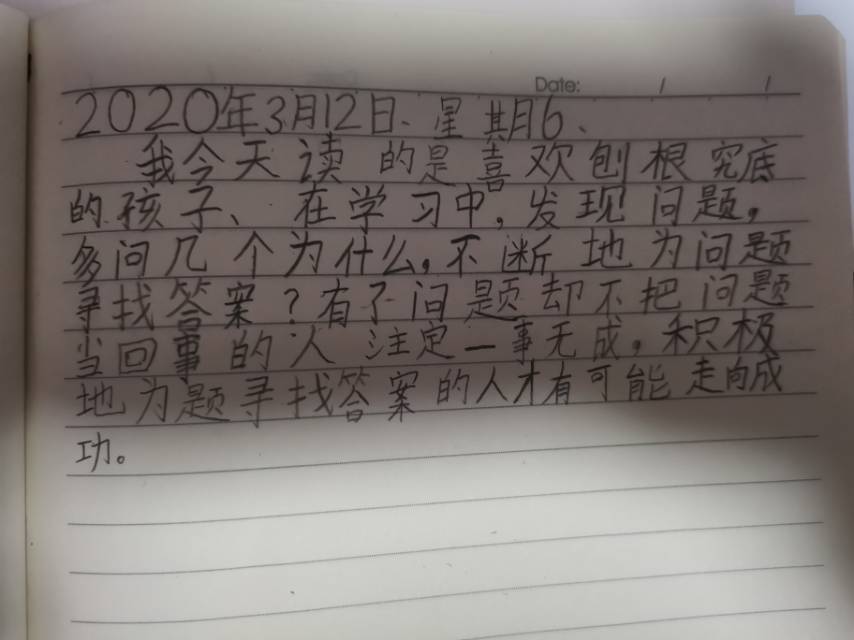 Date: / /
2020年3月12日、星期6、
我今天读的是喜欢刨根究底
的孩子、在学习中,发现问题,
多问几个为什么,不断地为问题
寻找答案?有了问题却不把问题
当回事的人注定一事无成,积极
地为题寻找答案的人才有可能走向成
功。